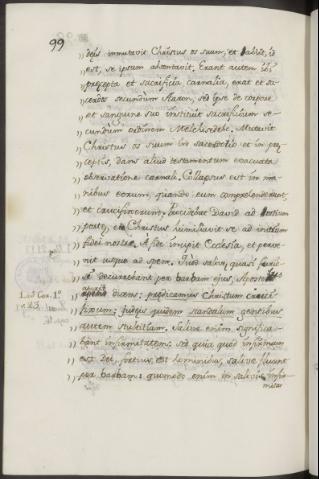 99
„ deis immutavit Christus os suum, et abiit, id
„ est, se ipsum absentavit. Erant autem ibi
„ præcepta et sacrificia carnalia, erat et sa-
„ cerdos secundum Aaron, sed ipse de corpore
„ et sanguine suo instituit sacrificium se-
„ cundum ordinem Melchisedech. Mutavit
„ Christus os suum in sacerdotio et in præ-
„ ceptis, dans aliud testamentum evacuata
„ observatione carnali. Collapsus est in ma-
„ nibus eorum, quando eum comprehenderunt,
„ et crucifixerunt. Procidebat David ad
„ portæ, id Christus humiliavit se ad initium
„ fidei nostræ. A fide incipit Ecclesia, et perve-
„ nit usque ad spem. Quid salivæ, quasi
„ decurrebant per barbam ejus. Aposto-
„ dicens: prædicamus Christum cruci
„ fixum; judeis quidem scandalum gentibus
„ autem stultitiam. Salivæ enim significa-
„ bant infirmitatem; sed quia quod infirmum
„ est Dei, fortius est hominibus, salivæ fluunt
„ per barbam: quomodo enim in salivis infir
mitas
Iad Cor. 1.